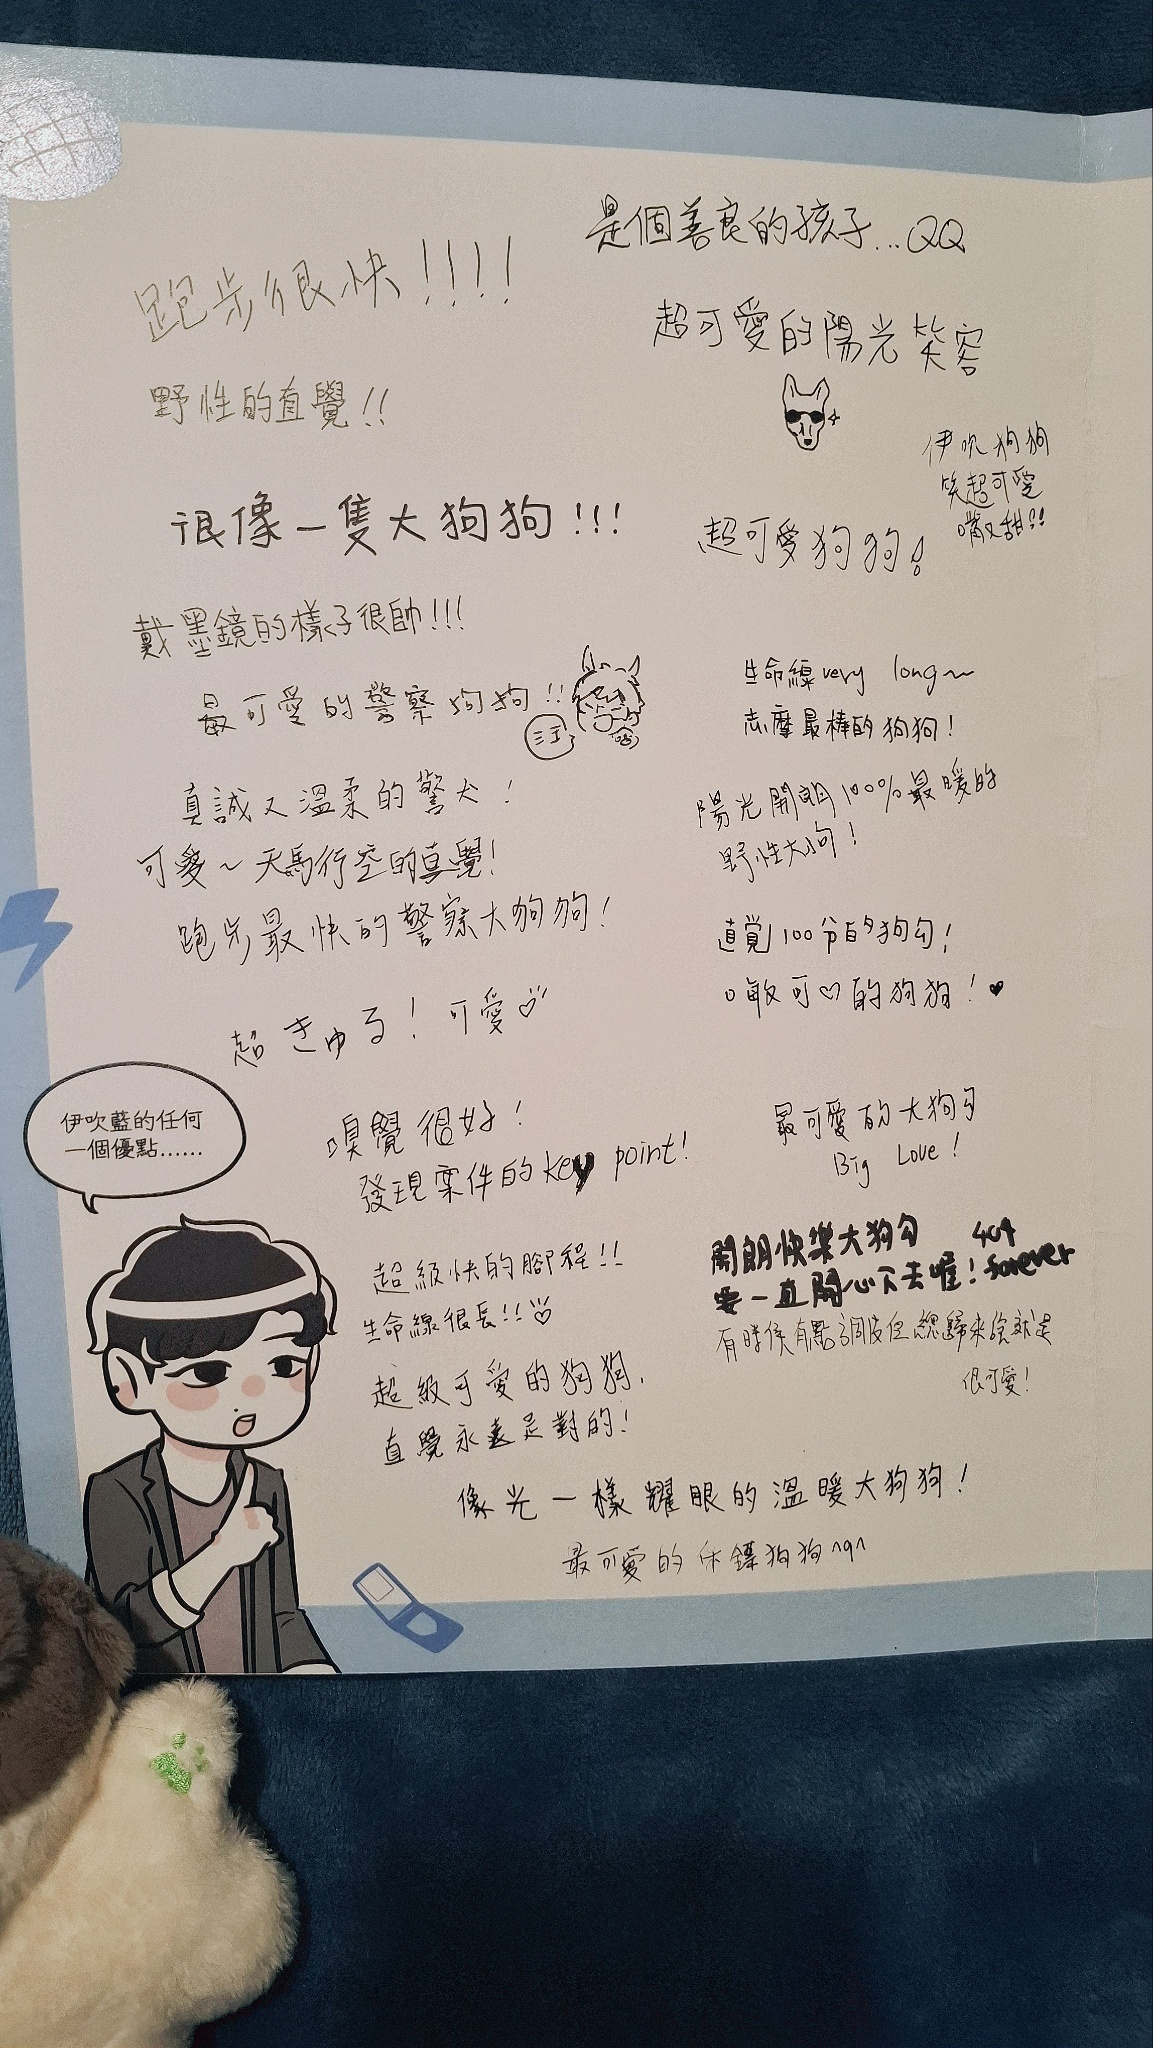 是個善良的孩子...QQ
跑步很快!!!!
超可愛的陽光笑容
野性的直覺!!
伊吹狗狗
笑超可愛
嘴又甜!!
很像一隻大狗狗!!!
超可愛狗狗!
戴墨鏡的樣子很帥!!!
最可愛的警察狗狗!!
生命線very long~
志摩最棒的狗狗!
真誠又溫柔的警犬!
陽光開朗100%最暖的
野性大狗!
可愛~天馬行空的直覺!
跑步最快的警察大狗狗!
直覺100分的狗勾!
可♡的狗狗!♥
超きゅる!可愛♡
嗅覺很好!
發現案件的key point!
最可愛的大狗勾
Big Love!
伊吹藍的任何
一個優點……
開朗快樂大狗勾
要一直開心下去喔!
404
forever
超級快的腳程!!
生命線很長!!♡
有時候有點調皮但總歸來說就是
很可愛!
超級可愛的狗狗,
直覺永遠是對的!
像光一樣耀眼的溫暖大狗狗!
最可愛的 狗狗^q^